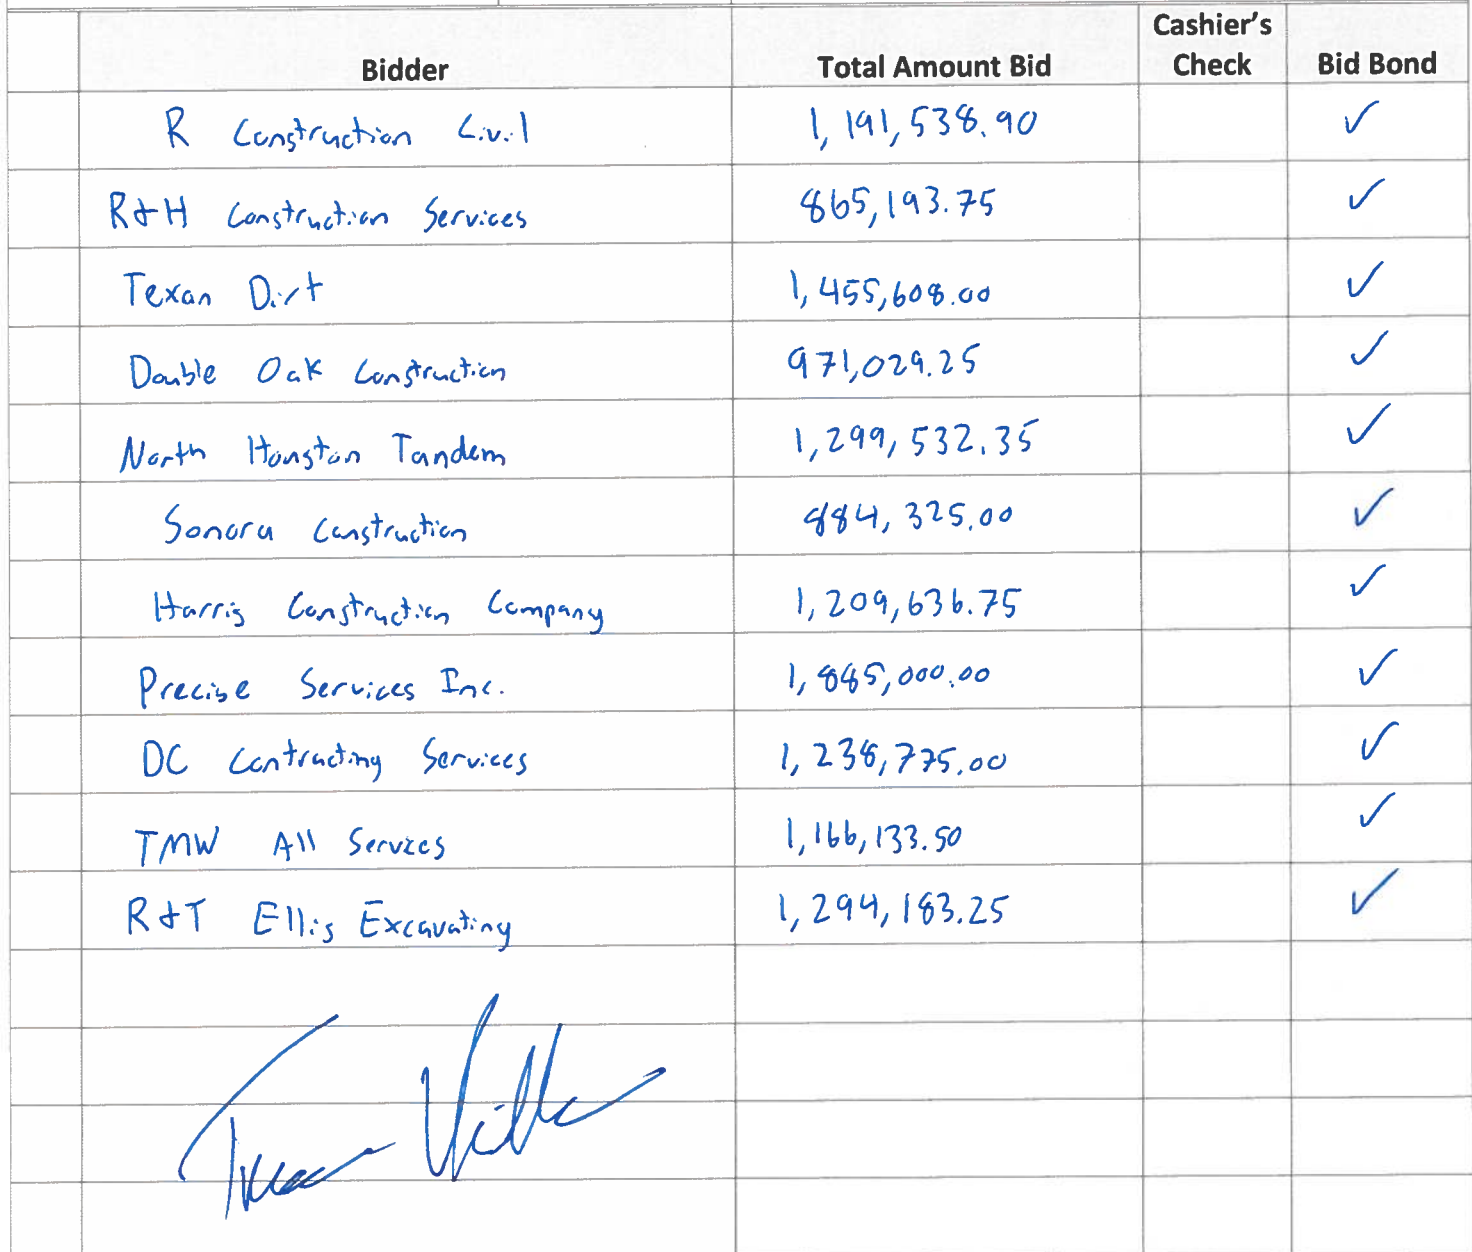 Bidder Total Amount Bid Cashier's Check Bid Bond
R Construction Civil 1,191,538.90 ✓
R&H Construction Services 865,193.75 ✓
Texan Dirt 1,455,608.00 ✓
Double Oak Construction 971,029.25 ✓
North Houston Tandem 1,299,532.35 ✓
Sonora Construction 884,325.00 ✓
Harris Construction Company 1,209,636.75 ✓
Precise Services Inc. 1,885,000.00 ✓
DC Contracting Services 1,238,775.00 ✓
TMW All Services 1,166,133.50 ✓
R&T Ellis Excavating 1,294,183.25 ✓